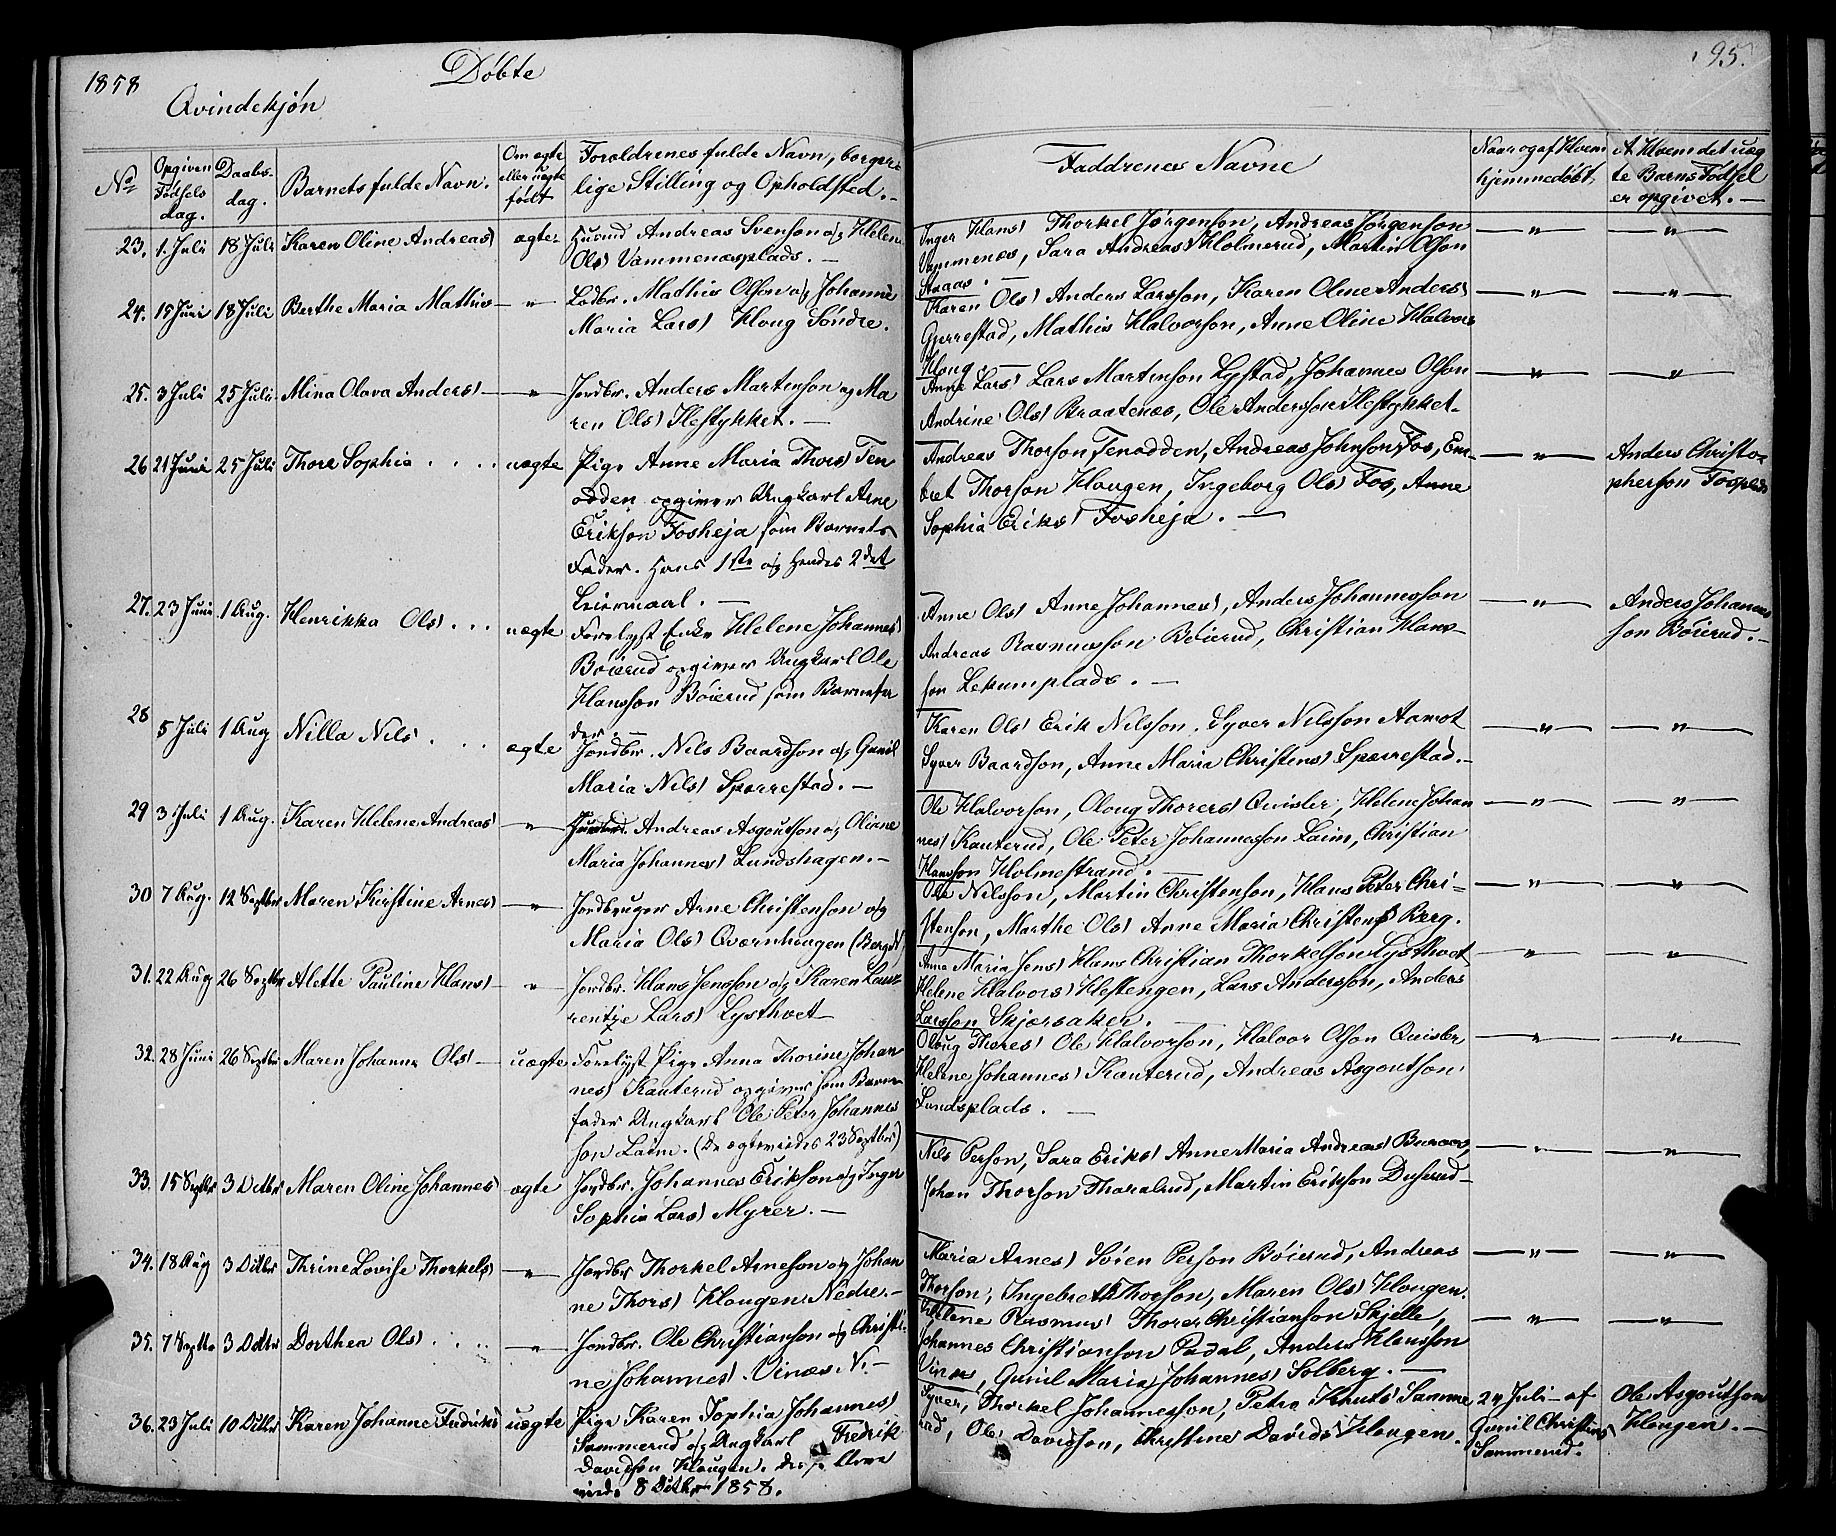 1858
Døbte
Qvindekjøn
95.
No
Opgiven Fødselsdag.
Daabsdag.
Barnets fulde Navn.
Om ægte eller uægte født
Forældrenes fulde Navn, borgerlige Stilling og Opholdsted.
Faddrenes Navne
Naar og af Hvem hjemmedøbt.
Af Hvem det uægte Barns Fødsel er opgivet.
23. 1. Juli 18 Juli Karen Oline Andreas) ægte Husmd Andreas Svenson og Helene
Ols) Vammenæsplads. —
Inger Hans) Thorkel Jørgenson, Andreas Jørgenson
Vammenæs, Sara Andreas) Holmerud, Martin Olson
Haaas. —
24. 15 Juni 18 Juli Berthe Maria Mathis — " Ladbr. Mathis Olson og Johanne
Maria Lars) Houg Søndre.
Karen Ols) Anders Larsson, Karen Oline Anders)
Gjerrestad, Mathis Halvorson, Anne Oline Halvors
Houg —
25. 3 Juli 25 Juli Mina Olava Anders) — " — Jordbr. Anders Martinson og Ma
ren Ols) Hestykket. —
Anne Lars) Lars Martinson Lystad, Johannes Olson
Andrine Ols) Braatenæs, Ole Andersson Hestykket.
26 21 Juni 25 Juli Thora Sophia . . . . uægte Pige Anne Maria Thors) Ten
odden opgiver Ungkarl Arne
Erikson Fosheja som Barnets
Fader. Hans 1ste og Hendes 2det
Leiermaal. —
Andreas Thorson Tenodden, Andreas Johnson Fos, Em
bret Thorson Hougen, Ingeborg Ols) Fos, Anne
Sophia Eriks) Fosheja. —
Anders Christo=
pherson Fosplads
27. 23 Juni 1 Aug. Henrikka Ols) . . . uægte Forelyst Enke Helene Johannes)
Bøierud opgiver Ungkarl Ole
Hansson Bøierud som Barnefa
der. —
Anne Ols) Anne Johannes), Anders Johannesson
Andreas Rasmusson Bøierud, Christian Hans
son Lekumplads. —
Anders Johannes
son Bøierud. —
28 5 Juli 1 Aug Nilla Nils) . . . ægte Jordbr. Nils Baardson og Gunil
Maria Nils) Sperrestad. —
Karen Ols) Erik Nilsson, Syver Nilsson Aamot
Syver Baardson, Anne Maria Christens) Sperrestad. —
29 3 Juli 1 Aug. Karen Helene Andreas) — " Andreas Asgoutson og Oliane
Maria Johannes) Lundshagen. —
Ole Halvorson, Oloug Thorers) Qvisler, Helene Johan
nes) Kauterud, Ole Peter Johannesson Laim, Christian
Hansson Holmestrand. —
30 7 Aug. 12 Septbr Maren Kirstine Arnes) — " — Jordbruger Arne Christenson og
Maria Ols) Qværnhougen (Berg)
Ole Nilsson, Martin Christenson, Hans Peter Chri=
stenson, Marthe Ols) Anne Maria Christens) Berg.
31. 22 Aug 26 Septbr Alette Pauline Hans) — " Jordbr. Hans Jensson og Karen Lau
rentze Lars) Lysthvet —
Anne Maria Jens) Hans Christian Thorkelson Lysthvet
Helene Halvors) Hestengen, Lars Andersson, Anders
Larsson Skjørsaker. —
32. 28 Juni 26 Septbr Maren Johanne Ols) — uægte Forelyst Pige Anna Thorine Johan
nes) Kauterud opgiver som Barne
fader Ungkarl Ole Peter Johannes
son Laim. (De ægteviedes 23 Septbr)
Oloug Thores) Ole Halvorson, Halvor Olson Qvisler
Helene Johannes) Kauterud, Andreas Asgoutson
Lundsplads. —
33. 15 Septbr 3 Octbr Maren Oline Johannes) ægte Jordbr. Johannes Erikson og Inger
Sophia Lars) Myrer. —
Nils Person, Sara Eriks) Anne Maria Andreas)
Johan Thorson Tharalrud, Martin Erikson Duserud —
34. 18 Aug 3 Octbr Thrine Lovise Thorkels) — " Jordbr Thorkel Arneson og Johan
ne Thors) Hougen Nedre. —
Maria Arnes) Søien Person Bøierud, Andreas
Thorson, Ingebreth Thorson, Maren Ols) Hougen.
35. 7 Septbr 3 Octbr Dorthea Ols) . . . — " Jordbr. Ole Christianson og Christi
ne Johannes) Vinæs N. —
Helene Rasmus) Thorer Christianson Skjelle,
Johannes Christianson Padal, Anders Hansson
Vinæs, Gunil Maria Johannes) Solberg. —
36. 23 Juli 10 Octbr Karen Johanne Fredriks) uægte Pige Karen Sophia Johannes)
Sammerud og Ungkarl Fredrik
Davidson Hougen. Disse bleve
viede 8 Octbr 1858.
Syver, Thorkel Johannesson, Petra Knuts) Samme
rud, Ole Davidson, Christine Davids) Hougen.
24 Juli af
Gunil Christians)
Sammerud.
Ole Asgoutson
Hougen. —